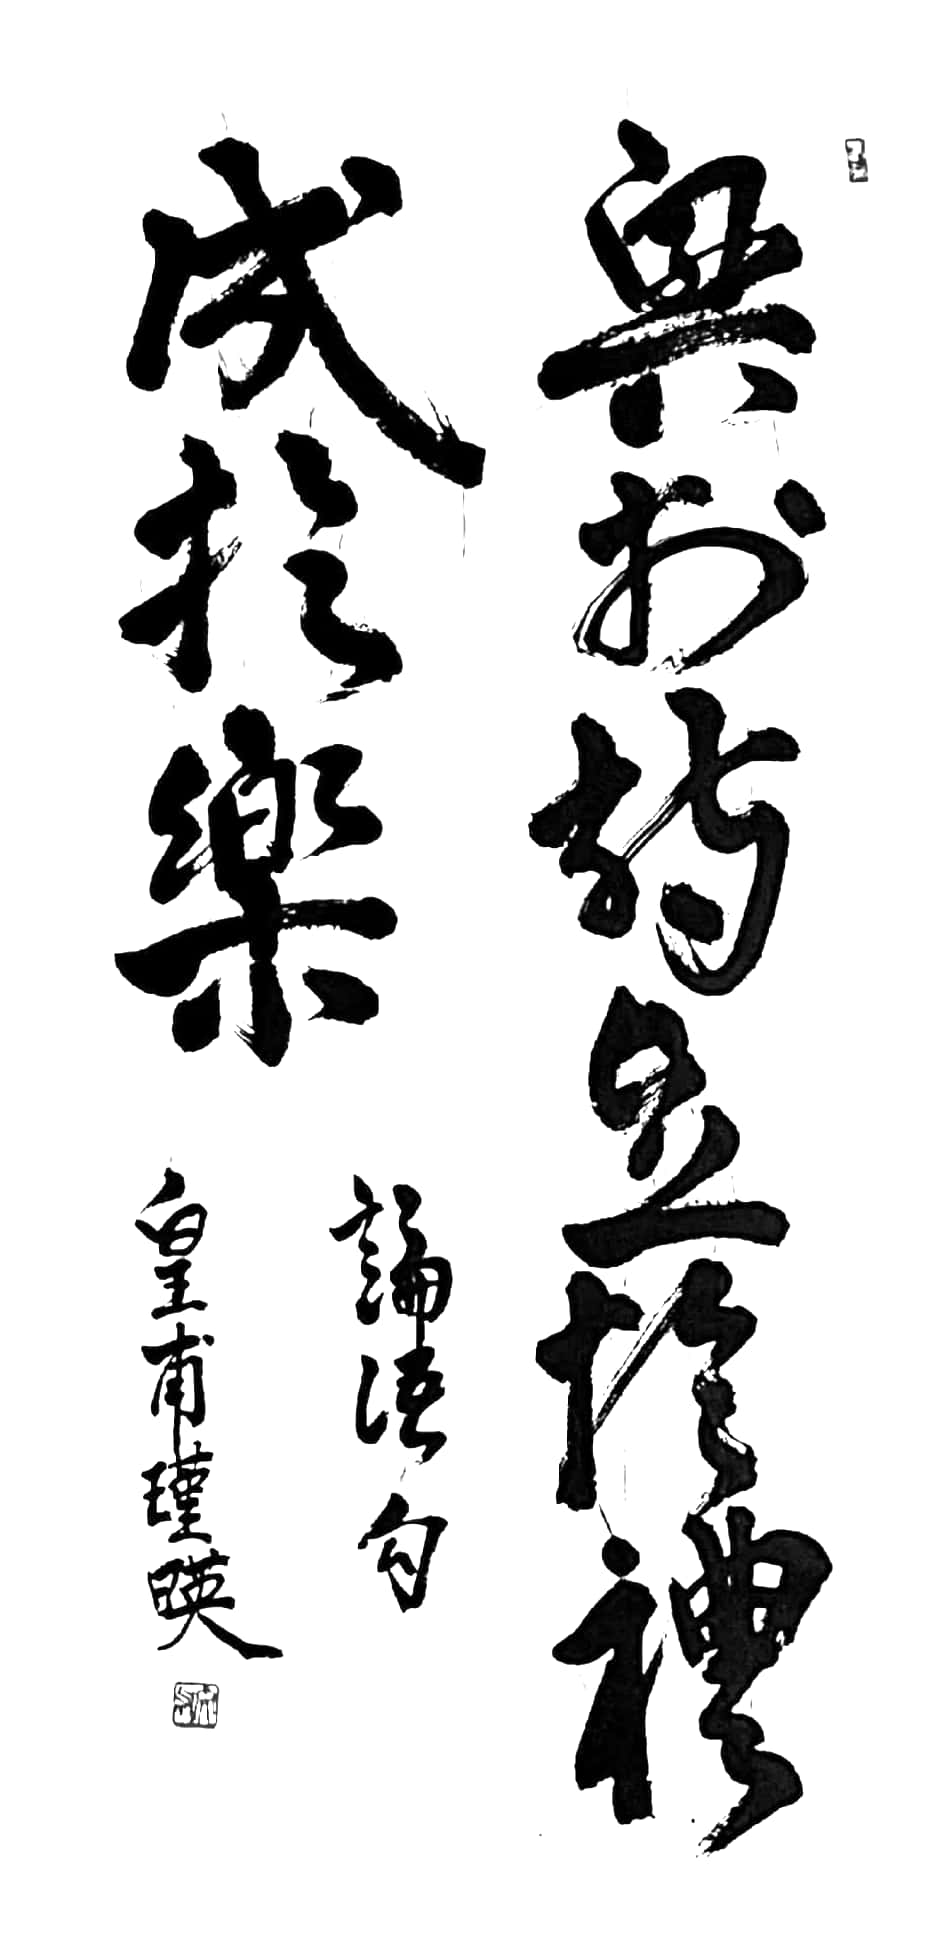 興於詩立於禮
成於樂
論語句
皇甫瑾暎